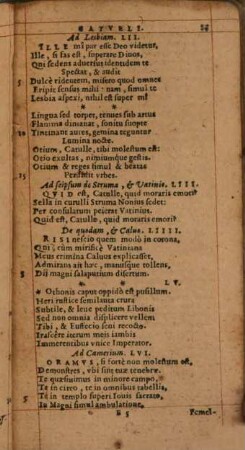 CATVLLI. 24
Ad Lesbiam. LII.
ILLE mi par esse Deo videtur,
Ille, si fas est, superare Diuos,
Qui sedens aduersus identidem te
Spectat, & audit
5 Dulcè ridentem, misero quod omnes
Eripit sensus mihi: nam, simul te
Lesbia aspexi, nihil est super mî
*
Lingua sed torpet, tenues sub artus
Flamma dimanat, sonitu suopte
10 Tintinant aures, gemina teguntur
Lumina nocte.
Otium, Catulle, tibi molestum est:
Otio exultas, nimiumque gestis.
Otium & reges simul & beatas
15 Perdidit vrbes.
Ad seipsum de Struma, & Vatinio. LIII.
QVID est, Catulle, quid moraris emori?
Sella in curuli Struma Nonius sedet:
Per consulatum peierat Vatinius.
Quid est, Catulle, quid moraris emori?
De quodam, & Caluo. LIIII.
RISI nescio quem modò in corona,
Qui, cùm mirificè Vatiniana
Meus crimina Caluos explicasset,
Admirans ait hæc, manusque tollens,
5 Dij magni salaputium disertum.
* LV.
* Othonis caput oppidò est pusillum.
Heri rusticè semilauta crura
Subtile, & leue peditum Libonis
Sed non omnia displicere vellem
Tibi, & Fuffecio seni recocto.
Irascêre iterum meis iambis
Immerentibus vnice Imperator.
Ad Camerium. LVI.
ORAMVS, si fortè non molestum est,
Demonstres, vbi sint tuæ tenebræ.
Te quæsiuimus in minore campo,
Te in circo, te in omnibus tabellis,
5 Te in templo superi Iouis sacrato,
In Magni simul ambulatione,
Femel-